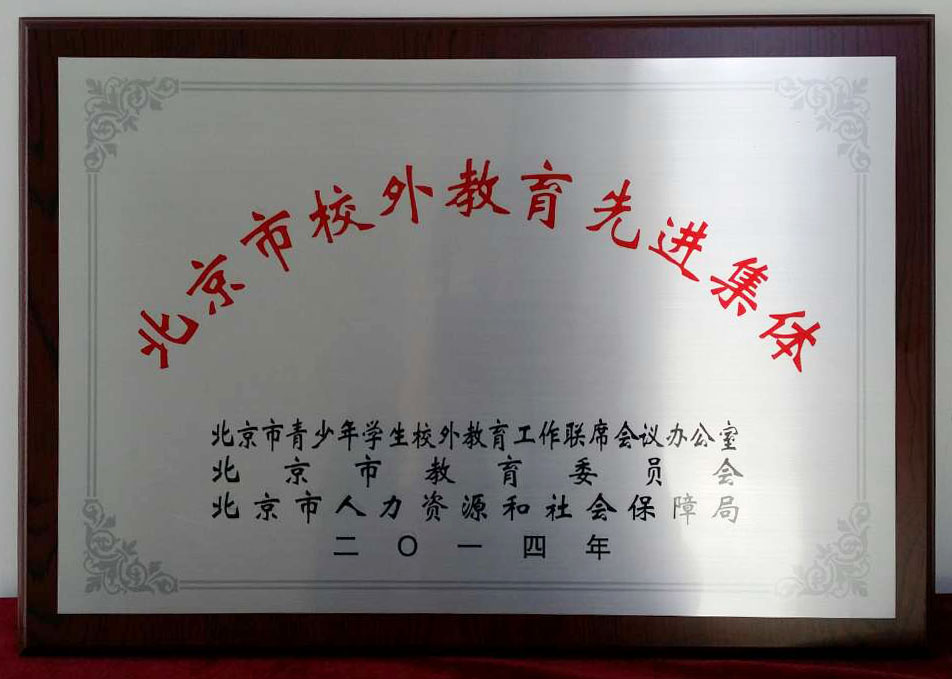 北京市校外教育先进集体
北京市青少年学生校外教育工作联席会议办公室
北京市教育委员会
北京市人力资源和社会保障局
二〇一四年